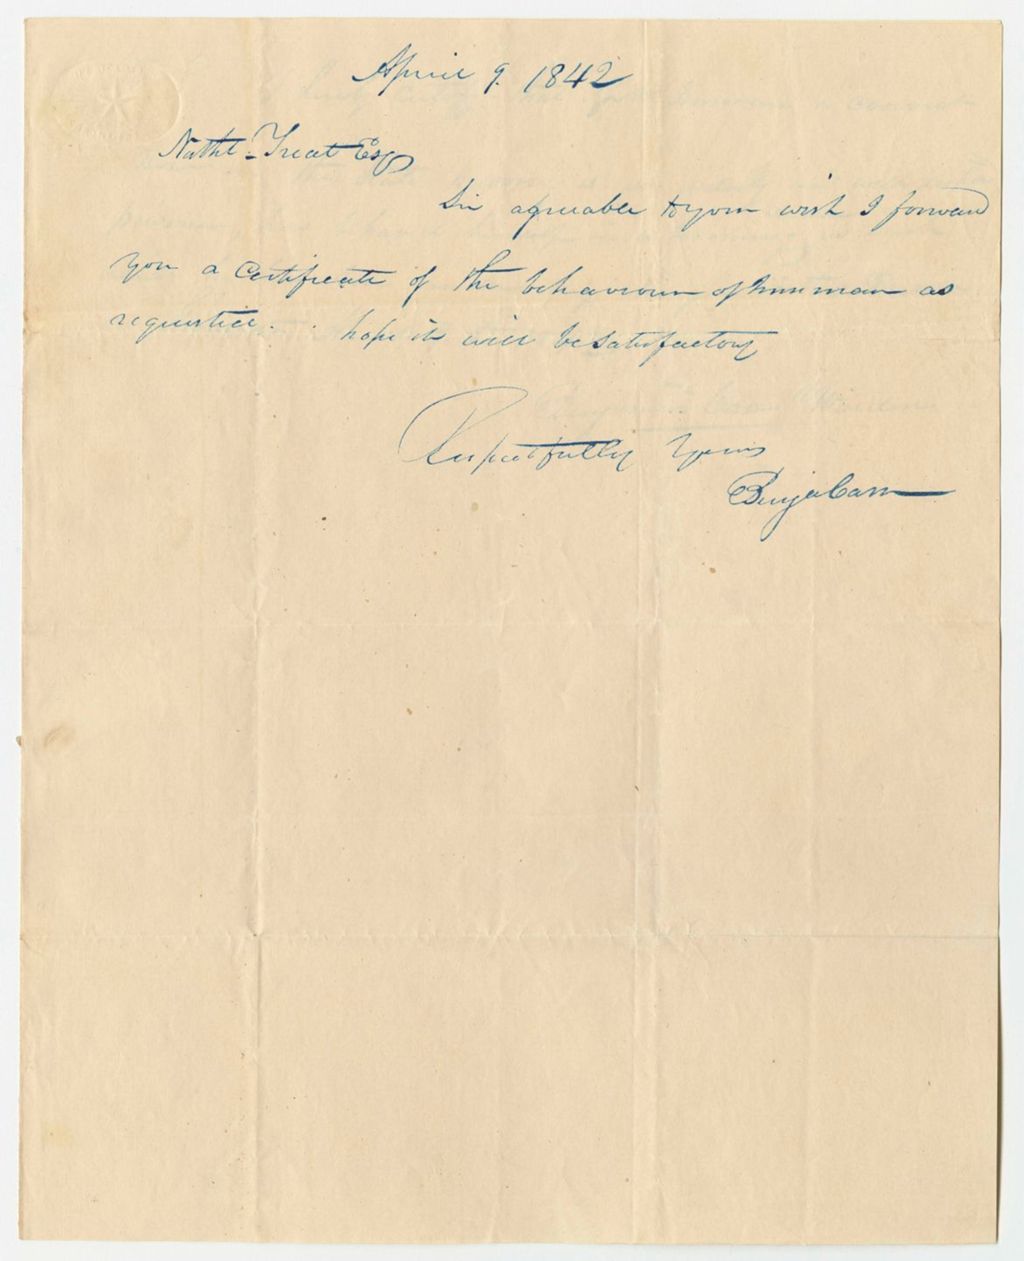 April 9. 1842
Nathl Treat Esq
Sir agreabler to your wish I forward
you a Certificate of the behaviour of
man as
requested. hope it will be satisfactory
Respectfully Yours
Benja Carr